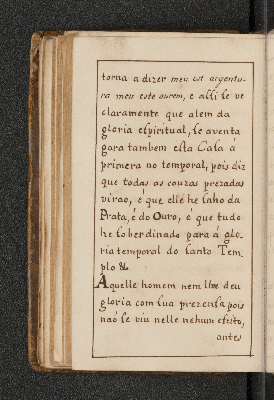 torna a dizer meu est argentu-
ra meu este ourem, e assi se ve
claramente que alem da
gloria espiritual, se aventa
gara tambem esta Casa á
primera no temporal, pois diz
que todas as couzas prezadas
virao, é que elle he senho da
Prata, é do Ouro, é que tudo
he sobordinado para á glo-
ria temporal do santo Tem-
plo &
Aquelle homem nem lhe deu
gloria com sua prezensa pois
naó se viu nelle nehum efeito,
antes